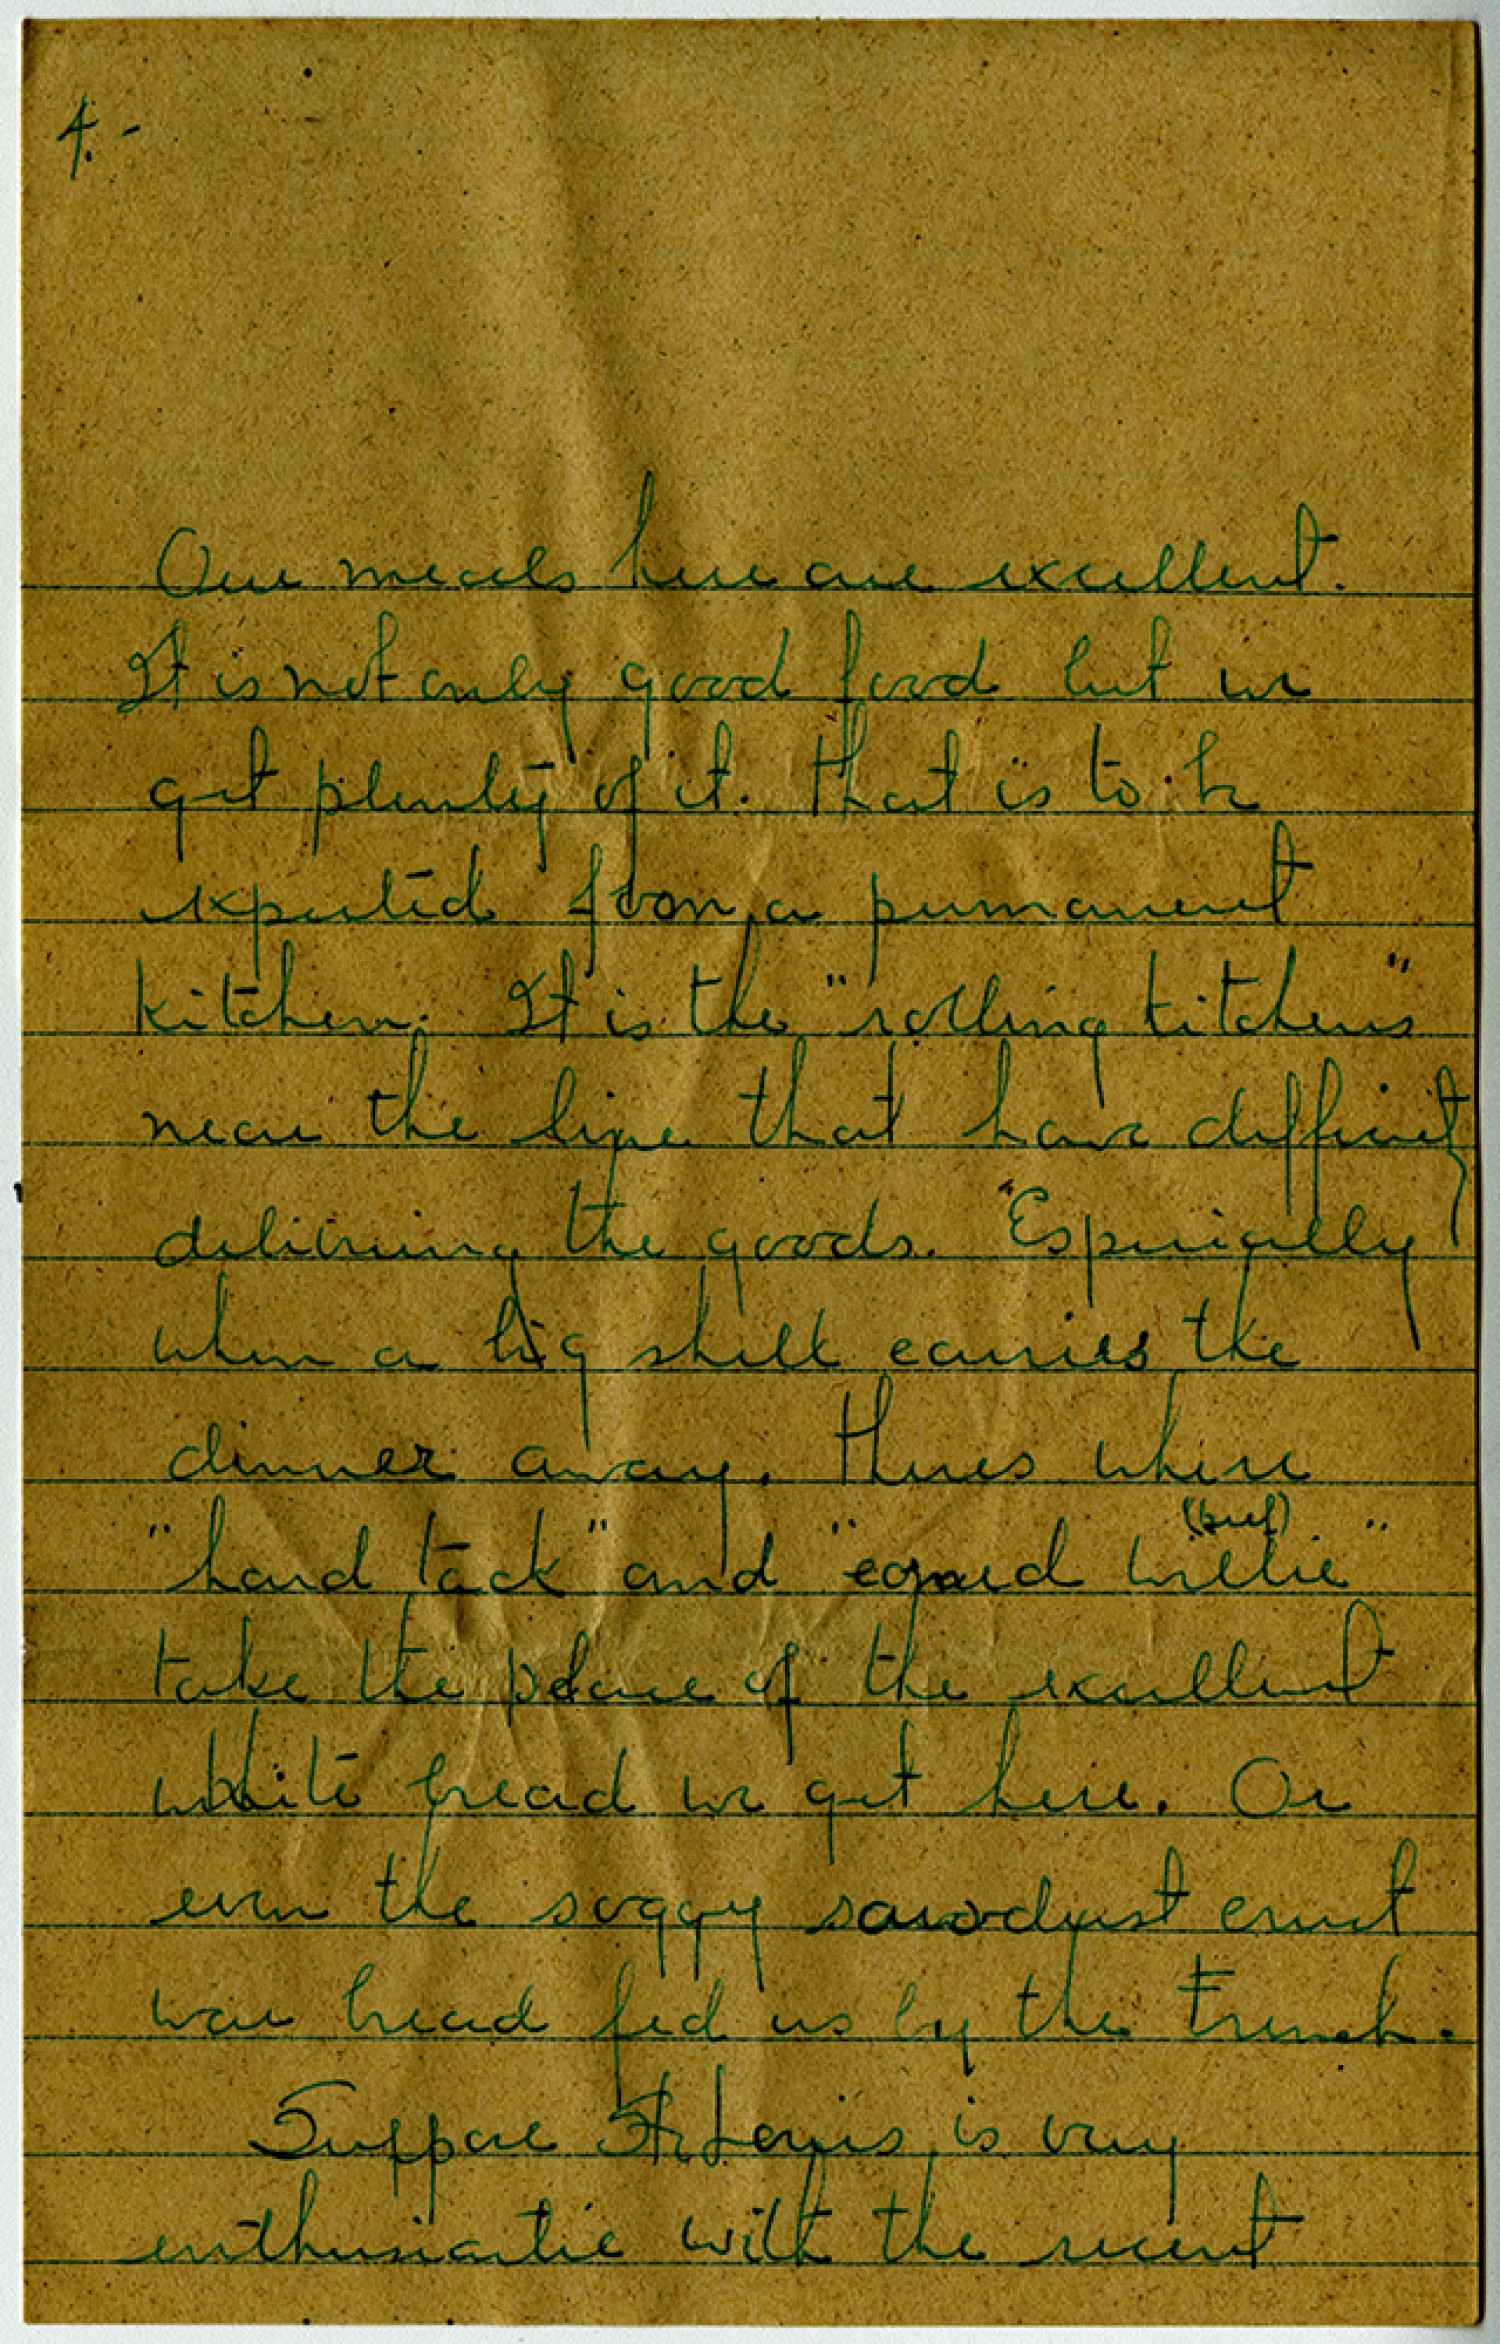 4.-
Our meals here are excellent.
It is not only good food but we
get plenty of it. That is to be
expected from a permanent
kitchen. It is the "rolling kitchens"
near the line that have difficulty
delivering the goods. Especially
when a big shell carries the
dinner away. Theres where
(beef)
"hard tack" and "corned willie"
take the place of the excellent
white bread we get here. Or
even the soggy sawdust crust
war bread fed us by the French.
Suppose St. Louis is very
enthusiastic with the recent